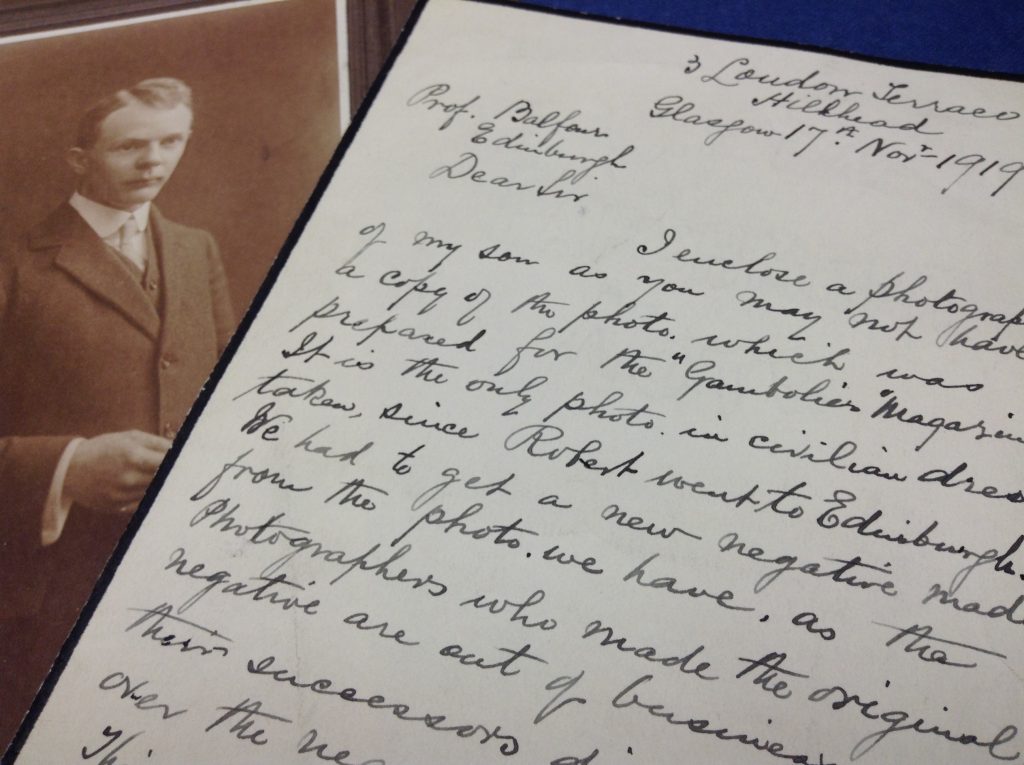 3 Loudon Terrace
Hillhead
Glasgow 17th Novr- 1919
Prof. Balfour
Edinburgh
Dear Sir
I enclose a photograph
of my son as you may not have
a copy of the photo. which was
prepared for the "Gambolier" Magazin
It is the only photo. in civilian dres
taken, since Robert went to Edinburgh.
We had to get a new negative mad
from the photo. we have, as the
Photographers who made the original
negative are out of business
their successors di
over the neg
Thi